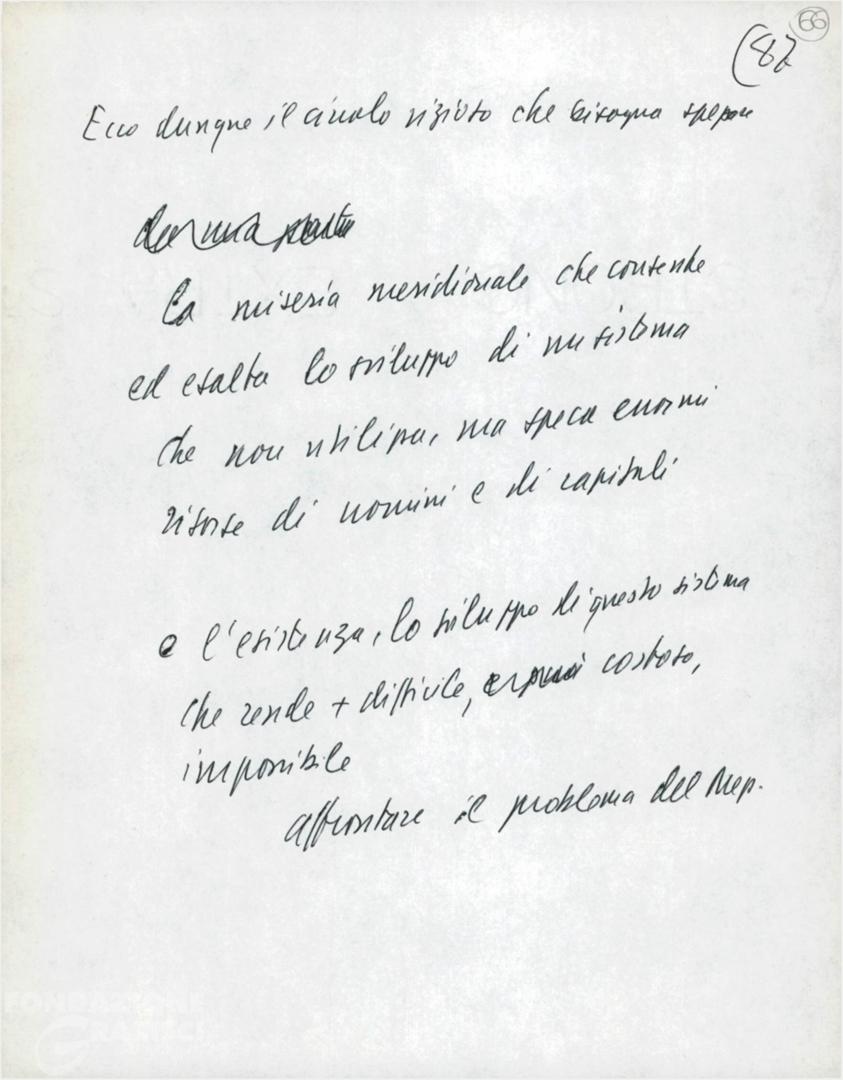 66
(82
Ecco dunque il circolo vizioso che bisogna spezzare
da una parte
la miseria meridionale che consente
ed esalta lo sviluppo di un sistema
che non utilizza, ma spreca enormi
risorse di uomini e di capitali
e l'esistenza, lo sviluppo di questo sistema
che rende + difficile, costoso,
impossibile
affrontare il problema del Mezz.
FONDAZIONE
GRAMSCI